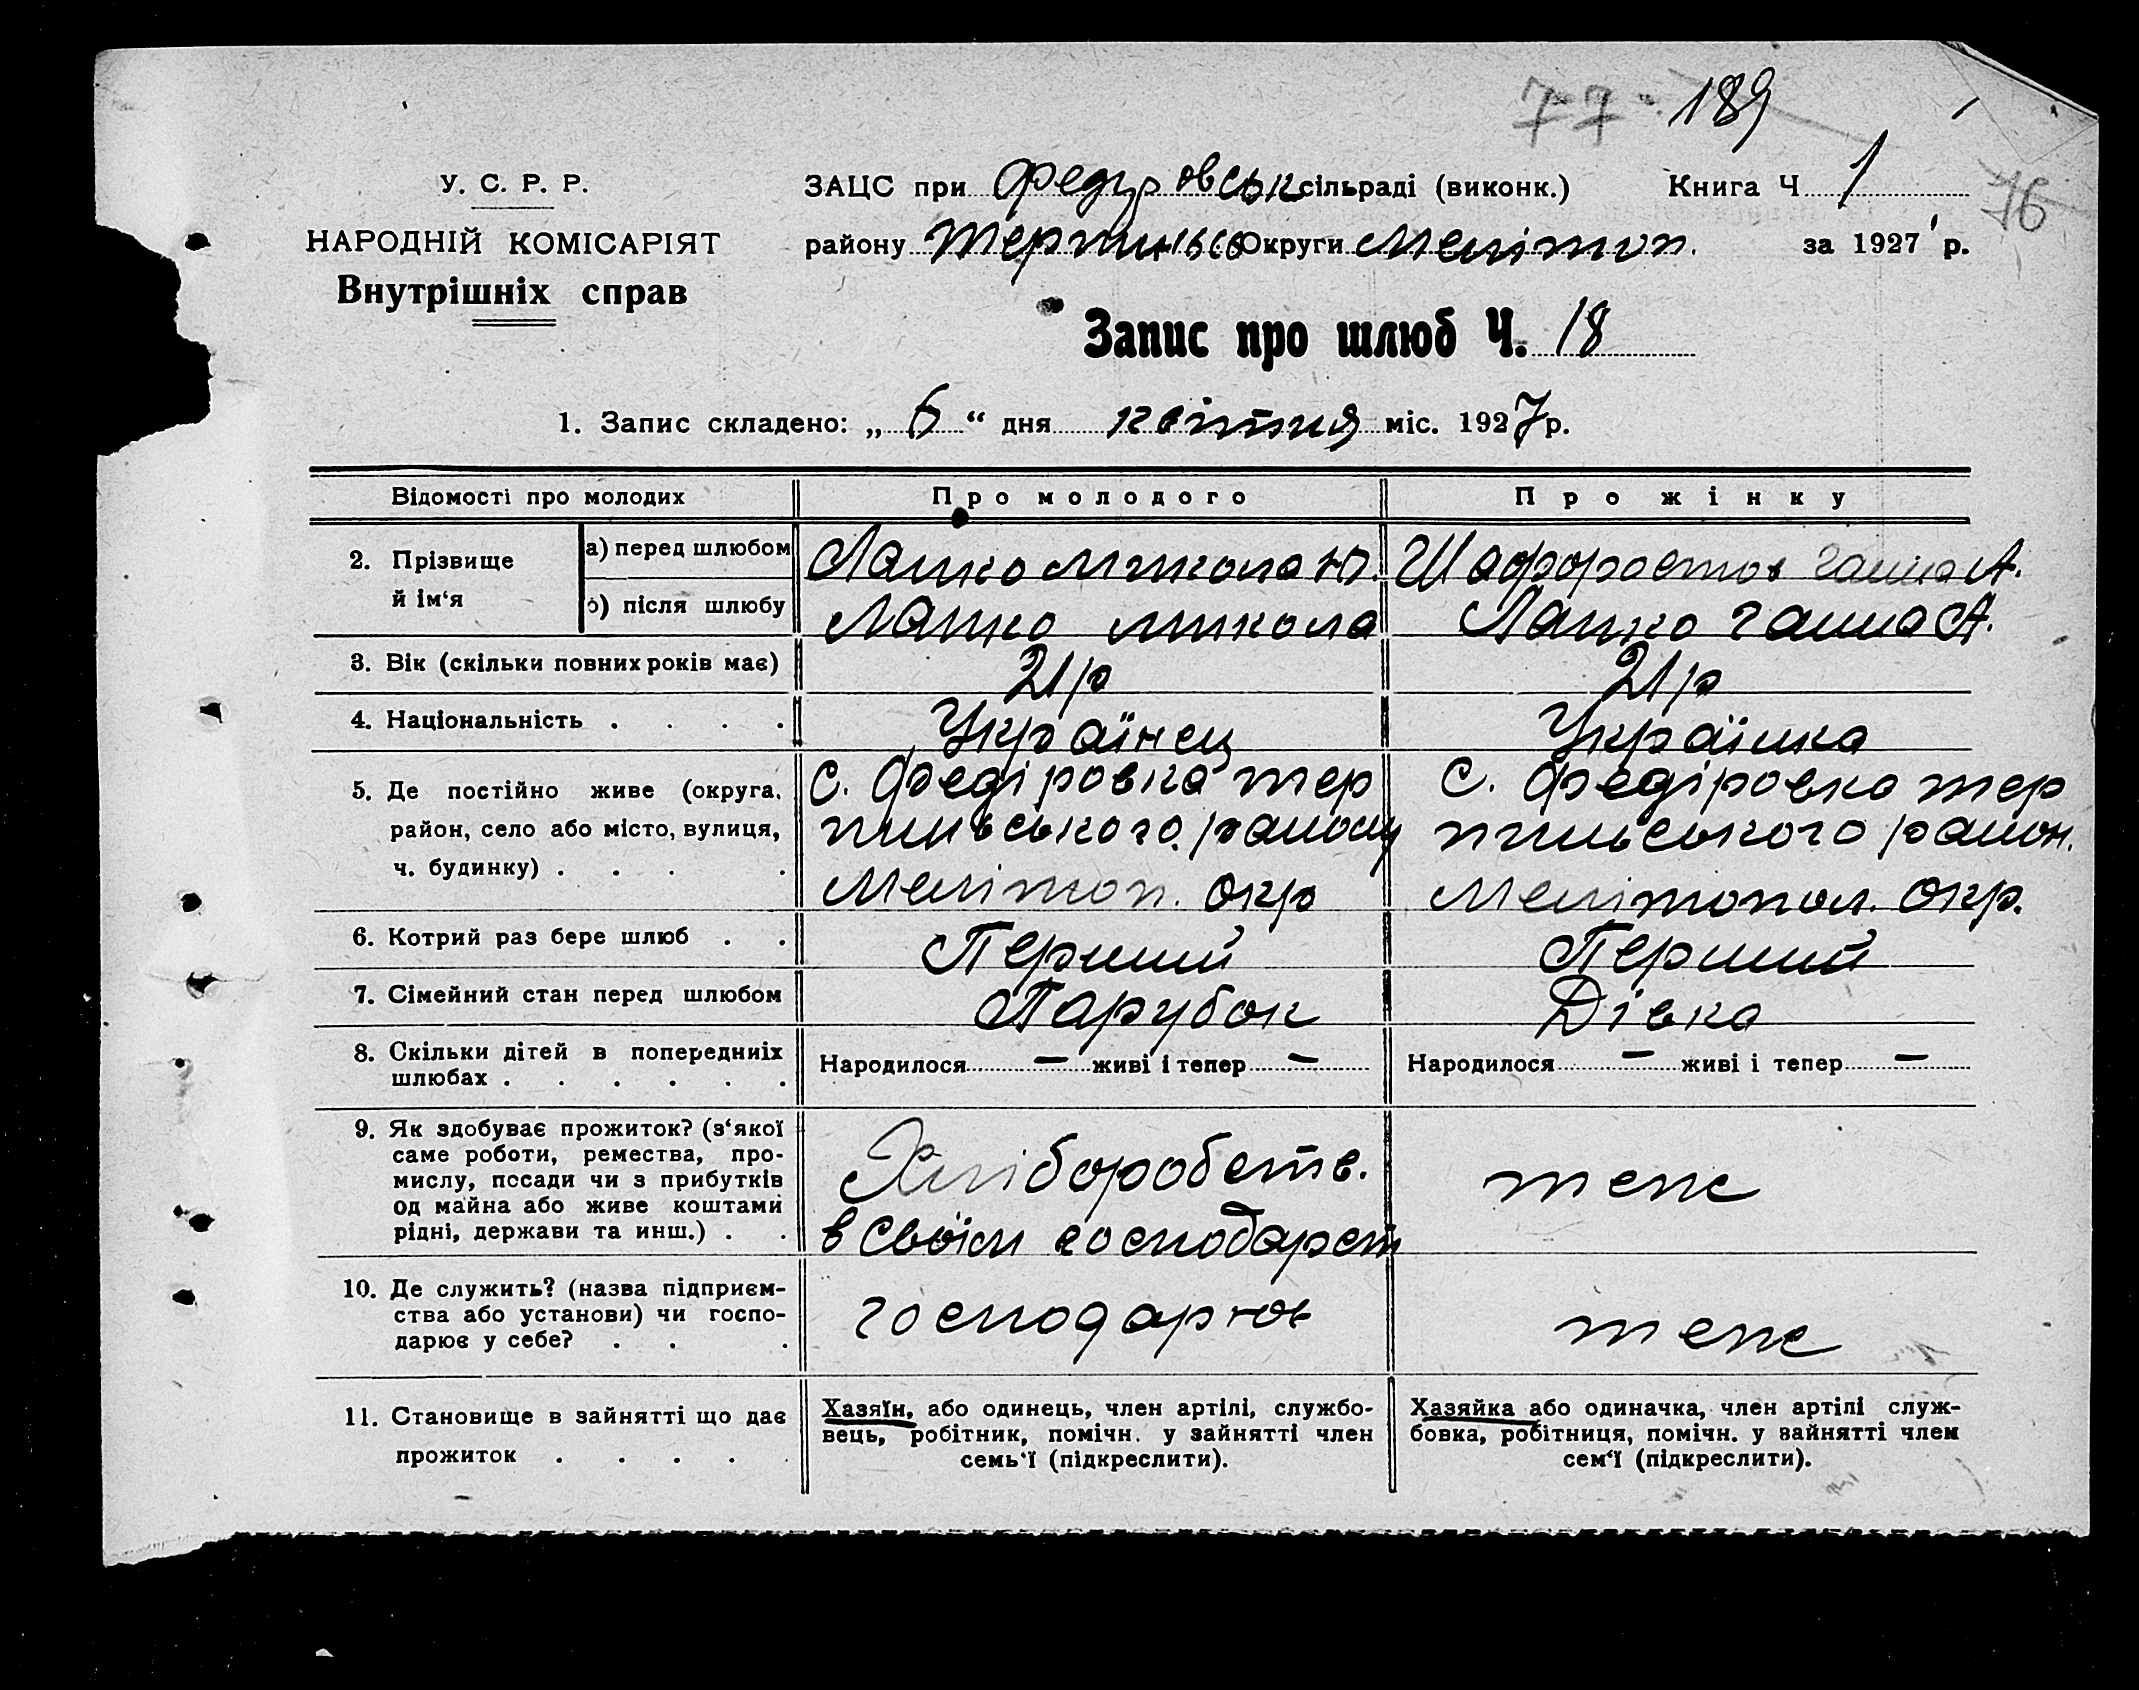 77. 189
У. С. Р. Р.
НАРОДНІЙ КОМІСАРІЯТ
Внутрішніх справ
ЗАЦС при Федоровськ сільраді (виконк.) Книга Ч 1
76
району Терпинівсь Округи Меліто п. за 1927 р.
Запис про шлюб Ч. 18
1. Запис складено: „ 6 “ дня квітня міс. 1927 р.
Відомості про молодих Про молодого Про жінку
2. Прізвище й ім‘я
а) перед шлюбом Лапко Микола Ю. Шафоростов Ганна А.
б) після шлюбу Лапко Микола Лапко Ганна А.
3. Вік (скільки повних років має) 21 р 21 р
4. Національність . . . . Українец Українка
5. Де постійно живе (округа, район, село або місто, вулиця, ч. будинку) . . . .
с. Федіровка Тер
пинвського району
Мелітоп. окр
с. Федіровка Тер
пильського район.
Мелітопол. окр.
6. Котрий раз бере шлюб . . Перший Перший
7. Сімейний стан перед шлюбом Парубок Дівка
8. Скільки дітей в попередниіх шлюбах . . . . . .
Народилося — живі і тепер — Народилося — живі і тепер —
9. Як здобуває прожиток? (з‘якої
саме роботи, ремества, про-
мислу, посади чи з прибутків
од майна або живе коштами
рідні, держави та инш.) . .
Хліборобств.
в своїм господарст
теж
10. Де служить? (назва підприєм-
ства або установи) чи госпо-
дарює у себе? . . .
господарює
теж
11. Становище в зайнятті що дає
прожиток . . . .
Хазяїн, або одинець, член артілі, службо-
вець, робітник, помічн. у зайнятті член
семь‘ї (підкреслити).
Хазяйка або одиначка, член артілі служ-
бовка, робітниця, помічн. у зайнятті член
сем‘ї (підкреслити).